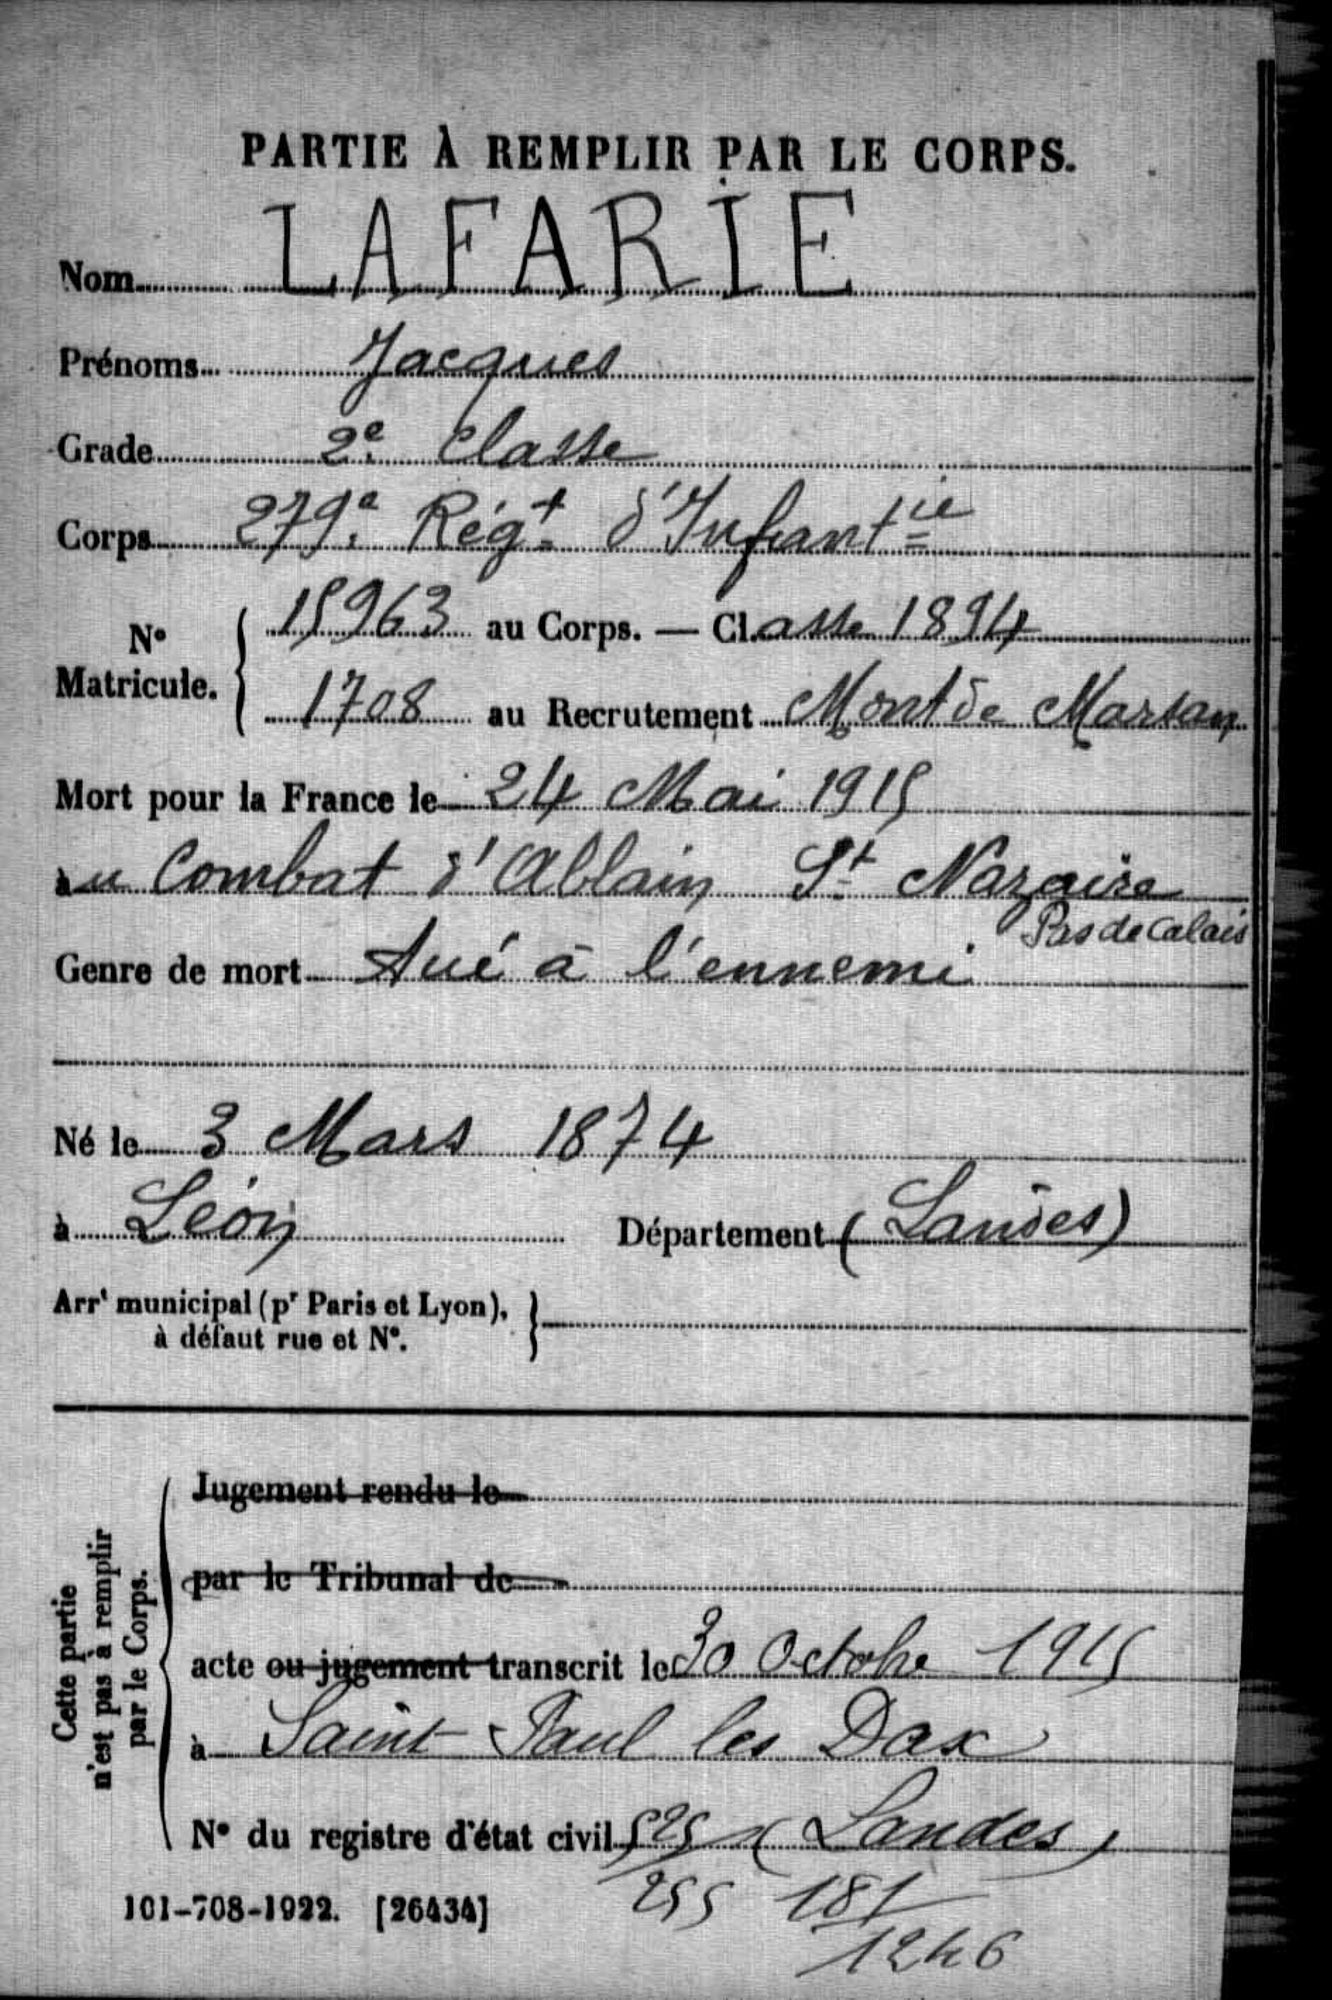 PARTIE À REMPLIR PAR LE CORPS.
Nom LAFARIE
Prénoms Jacques
Grade 2e Classe
Corps 279e Régt d'Infantie
No Matricule. 15963 au Corps. — Cl.asse 1894
1708 au Recrutement Mont de Marsan
Mort pour la France le 24 Mai 1915
àu Combat d'Ablain St Nazaire
Pas de Calais
Genre de mort tué à l'ennemi
Né le 3 Mars 1874
à Léon Département (Landes)
Arrt municipal (pr Paris et Lyon),
à défaut rue et No.
Cette partie
n'est pas à remplir
par le Corps.
Jugement rendu le
par le Tribunal de
acte ou jugement transcrit le 30 Octobre 1915
à Saint Paul les Dax
No du registre d'état civil 525 (Landes)
255 181
1246
101-708-1922. [26434]